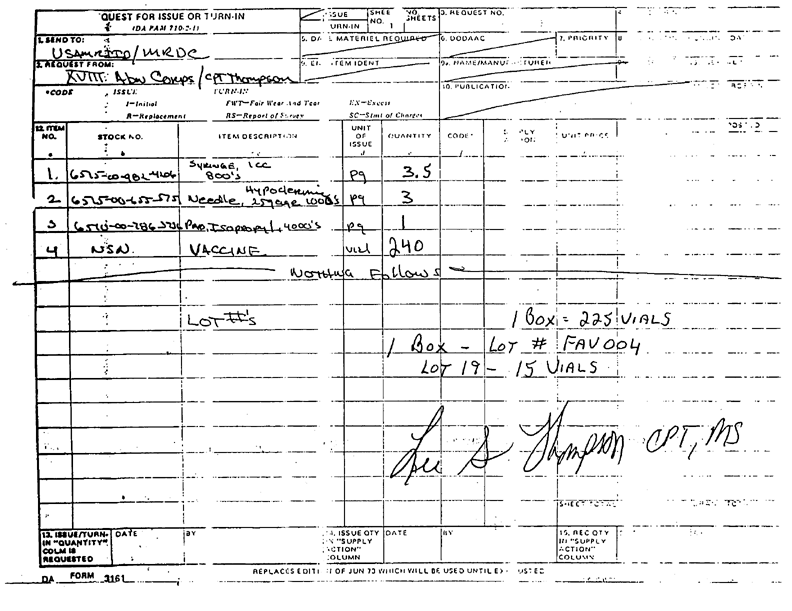 QUEST FOR ISSUE OR TURN-IN
(DA PAM 710-2-1)
SSUE
URN-IN
SHEE
NO. 1
NO.
SHEETS
3. REQUEST NO.
1. SEND TO:
USAMRIID/MRDC
MATERIEL REQUIRED
6. DODAAC
7. PRIORITY
8
2. REQUEST FROM:
XVIII Abn Corps/CPT Thompson
TEM IDENT
9a. NAME/MANUFACTURER
10. PUBLICATION
*CODE
ISSUE
TURN-IN
I—Initial
FWT—Fair Wear And Tear
EX—Excess
R—Replacement
RS—Report of Survey
SC—Stmt of Charges
12. ITEM
NO.
STOCK NO.
ITEM DESCRIPTION
UNIT
OF
ISSUE
QUANTITY
CODE*
UNIT PRICE
1. 6515-00-982-4206 SYRINGE, 1CC 800's pg 3.5
2 Needle, Hypodermic 25gage 1000's pg 3
3 Pad, Isopropyl, 4000's pg 1
4 NSN. VACCINE vial 240
Nothing Follows
LOT #'s
1 Box = 225 VIALS
1 Box - LOT # FAV004
LOT 19 - 15 VIALS
Lee S Thompson CPT, MS
SHEET TOTAL
13. ISSUE/TURN-
IN "QUANTITY"
COLM IS
REQUESTED
DATE
BY
ISSUE QTY
IN "SUPPLY
ACTION"
COLUMN
DATE
BY
15. REC QTY
IN "SUPPLY
ACTION"
COLUMN
DA FORM 3161
REPLACES EDITI OF JUN 73 WHICH WILL BE USED UNTIL